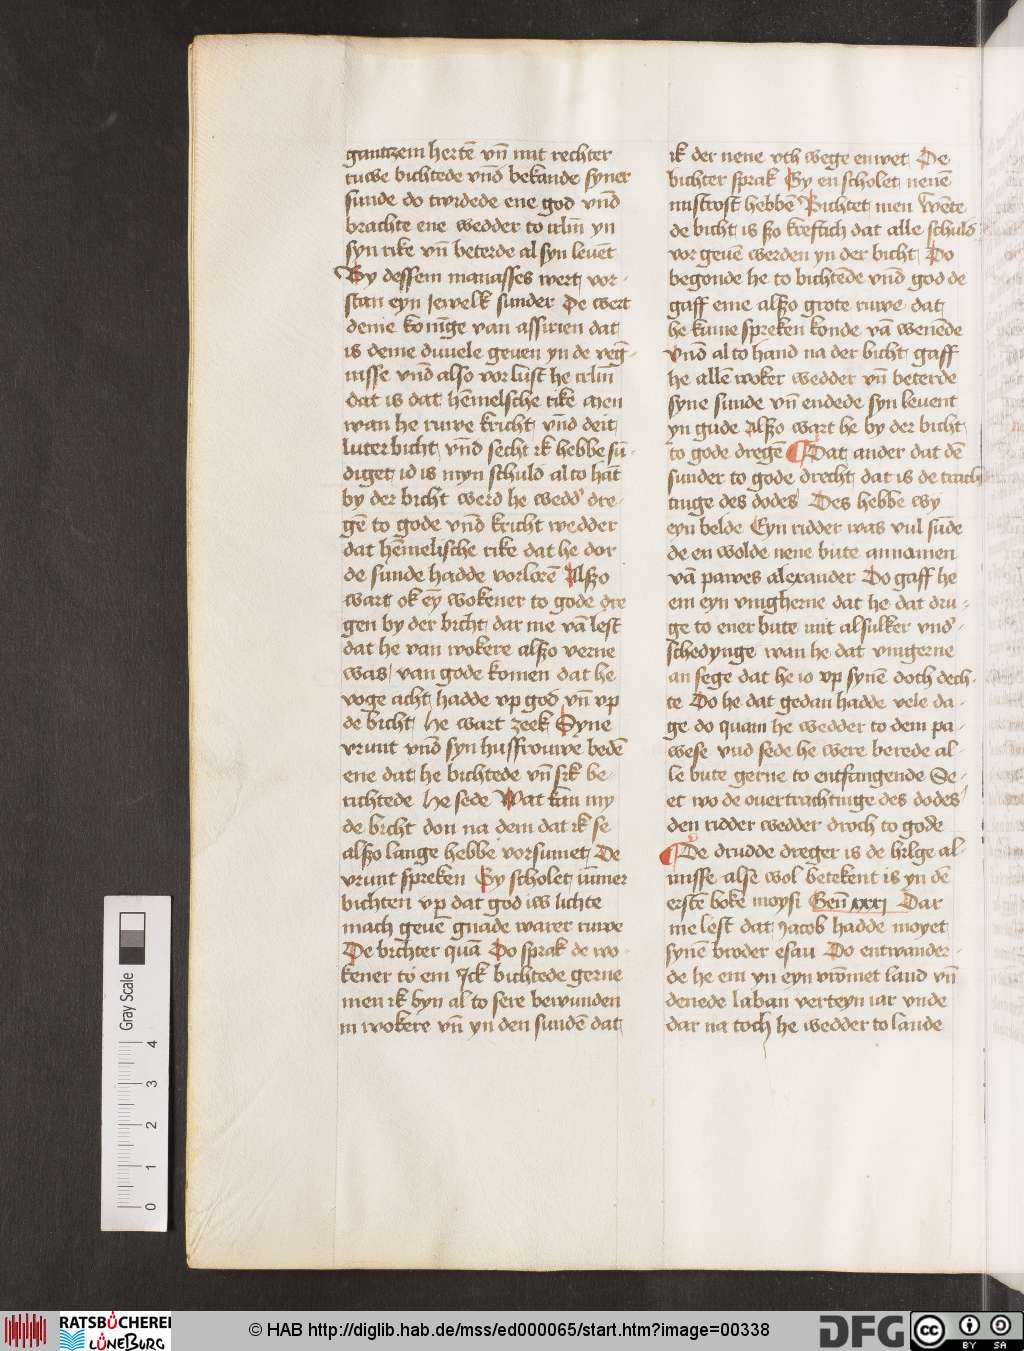 gantzem hertē vn̄ mit rechter
ruwe bichtede vn̄d bekande syner
sunde do twidede ene god vn̄d
brachte ene wedder to irlm̄ yn
syn rike vn̄ beterde al syn leuēt
By dessem manasses wert vor-
stan eyn iewelk sunder De wert
deme koninge van assirien dat
is deme duuele geuen yn de veg-
nisse vn̄d also vorlust he irlm̄
dat is dat hēmelsche rike Men
wan he ruwe kricht vn̄d deit
luter bicht vn̄d secht ik hebbe sū-
diget id is myn schuld al to hāt
by der bicht werd he wedd' dre-
gē to gode vn̄d kricht wedder
dat hēmelische rike dat he dor
de sunde hadde vorlorē Alszo
wart ok eȳ wokener to gode dre
gen by der bicht dar me vā lest
dat he van wokere alszo verne
was van gode komen dat he
voge acht hadde vp god vn̄ vp
de bicht He wart zeek Syne
vrunt vn̄d syn husfrouwe bedē
ene dat he bichtede vn̄ sik be-
richtede He sede Wat kan my
de bicht don na dem dat ik se
alszo lange hebbe vorsumet De
vrunt spreken Gy scholet iūmer
bichten vp dat god iw lichte
mach geuē gnade warer ruwe
De bichter quā Do sprak de wo-
kener to em Ick bichtede gerne
men ik byn al to sere bewunden
in wokere vn̄ yn den sundē dat
ik der nene vth wege enwet De
bichter sprak Gy en scholet nenē
mistrost hebbē Bichtet men Wēte
de bicht is szo kreftich dat alle schuld
vorgeuē werden yn der bicht Do
begonde he to bichtēde vn̄d god de
gaff eme alszo grote ruwe dat
he kume spreken konde vā wenēde
vn̄d al to hand na der bicht gaff
he allē woker wedder vn̄ beterde
syne sunde vn̄ endede syn leuent
yn gude Alszo wart he by der bicht
to gode dregē Dat ander dat dē
sunder to gode drecht dat is de trach
tinge des dodes Des hebbe wy
eyn belde Eyn ridder was vul sūde
de en wolde nene bute annamen
vā pawes alexander Do gaff he
em eyn vingherne dat he dat dru-
ge to ener bute mit alsulker vnd'-
schedynge wan he dat vingerne
an sege dat he io vp synē doch dech-
te Do he dat gedan hadde vele da-
ge do quam he wedder to dem pa-
wese vnd sede he were berede al-
le bute gerne to entfangende Se-
et wo de ouertrachtinge des dodes
den ridder wedder droch to gode
De drudde dreger is de hilge al-
misse alse wol betekent is yn dē
erstē boke moysi Gen̄ xxxi Dar
me lest dat Jacob hadde moyet
synē broder esau Do entwander-
de he em yn eyn vrōmet land vn̄
denede laban verteyn iar vnde
dar na toch he wedder to lande
Gray Scale
4
3
2
1
0
RATSBÜCHEREI
LÜNEBURG
© HAB http://diglib.hab.de/mss/ed000065/start.htm?image=00338
DFG
cc
BY
SA